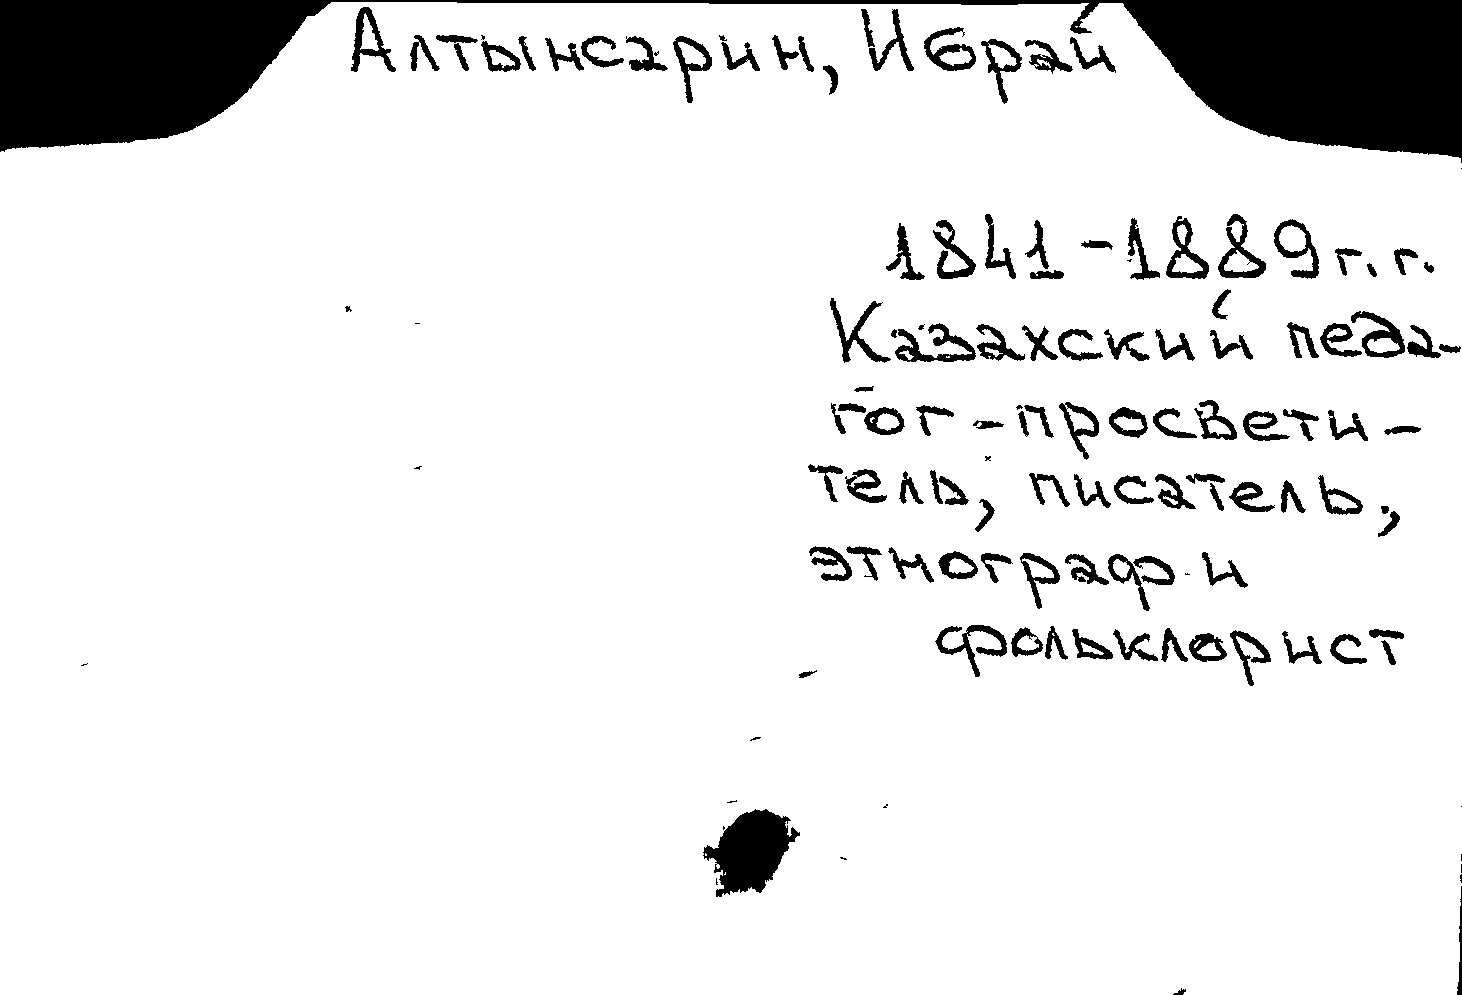 Алтынсарин, Ибрай
1841-1889 г.г.
Казахский педа-
гог-просвети-
тель, писатель,
этнограф и
фольклорист